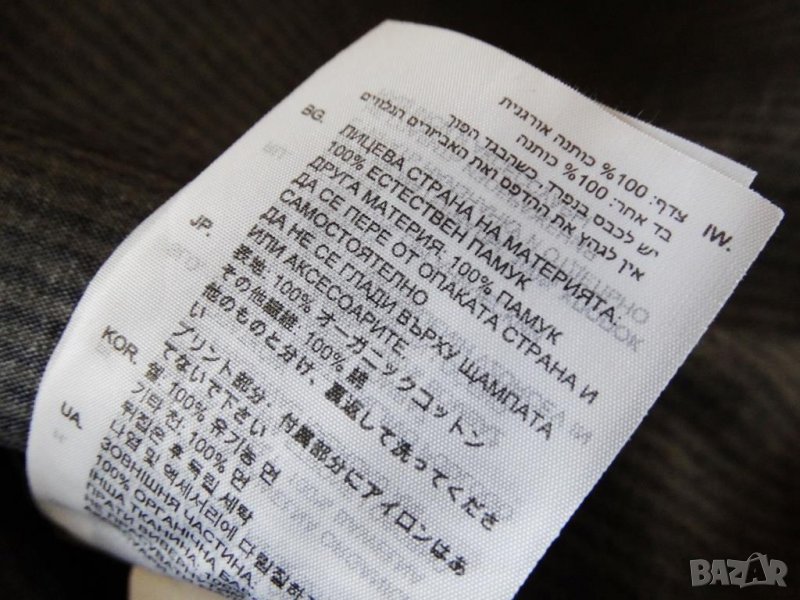 IW.
צדף: 100% כותנה אורגנית
בד אחר: 100% כותנה
יש לכבס בנפרד, כשהבגד הפוך
אין לגהץ את ההדפס ואת האביזרים הנלווים
BG.
ЛИЦЕВА СТРАНА НА МАТЕРИЯТА:
100% ЕСТЕСТВЕН ПАМУК
ДРУГА МАТЕРИЯ: 100% ПАМУК
ДА СЕ ПЕРЕ ОТ ОПАКАТА СТРАНА И
САМОСТОЯТЕЛНО
ДА НЕ СЕ ГЛАДИ ВЪРХУ ЩАМПАТА
ИЛИ АКСЕСОАРИТЕ.
JP.
表地: 100% オーガニックコットン
その他繊維: 100% 綿
他のものと分け、裏返して洗ってくださ
い
プリント部分、付属部分にアイロンはあ
てないで下さい
KOR.
쉘: 100% 유기농 면
기타 천: 100% 면
뒤집은 후 독립 세탁
나염 및 액세서리에 다림질하지
UA.
ЗОВНІШНЯ ЧАСТИНА:
100% ОРГАНІЧНА
ІНША ТКАНИНА:
ПРАТИ
BAZAR